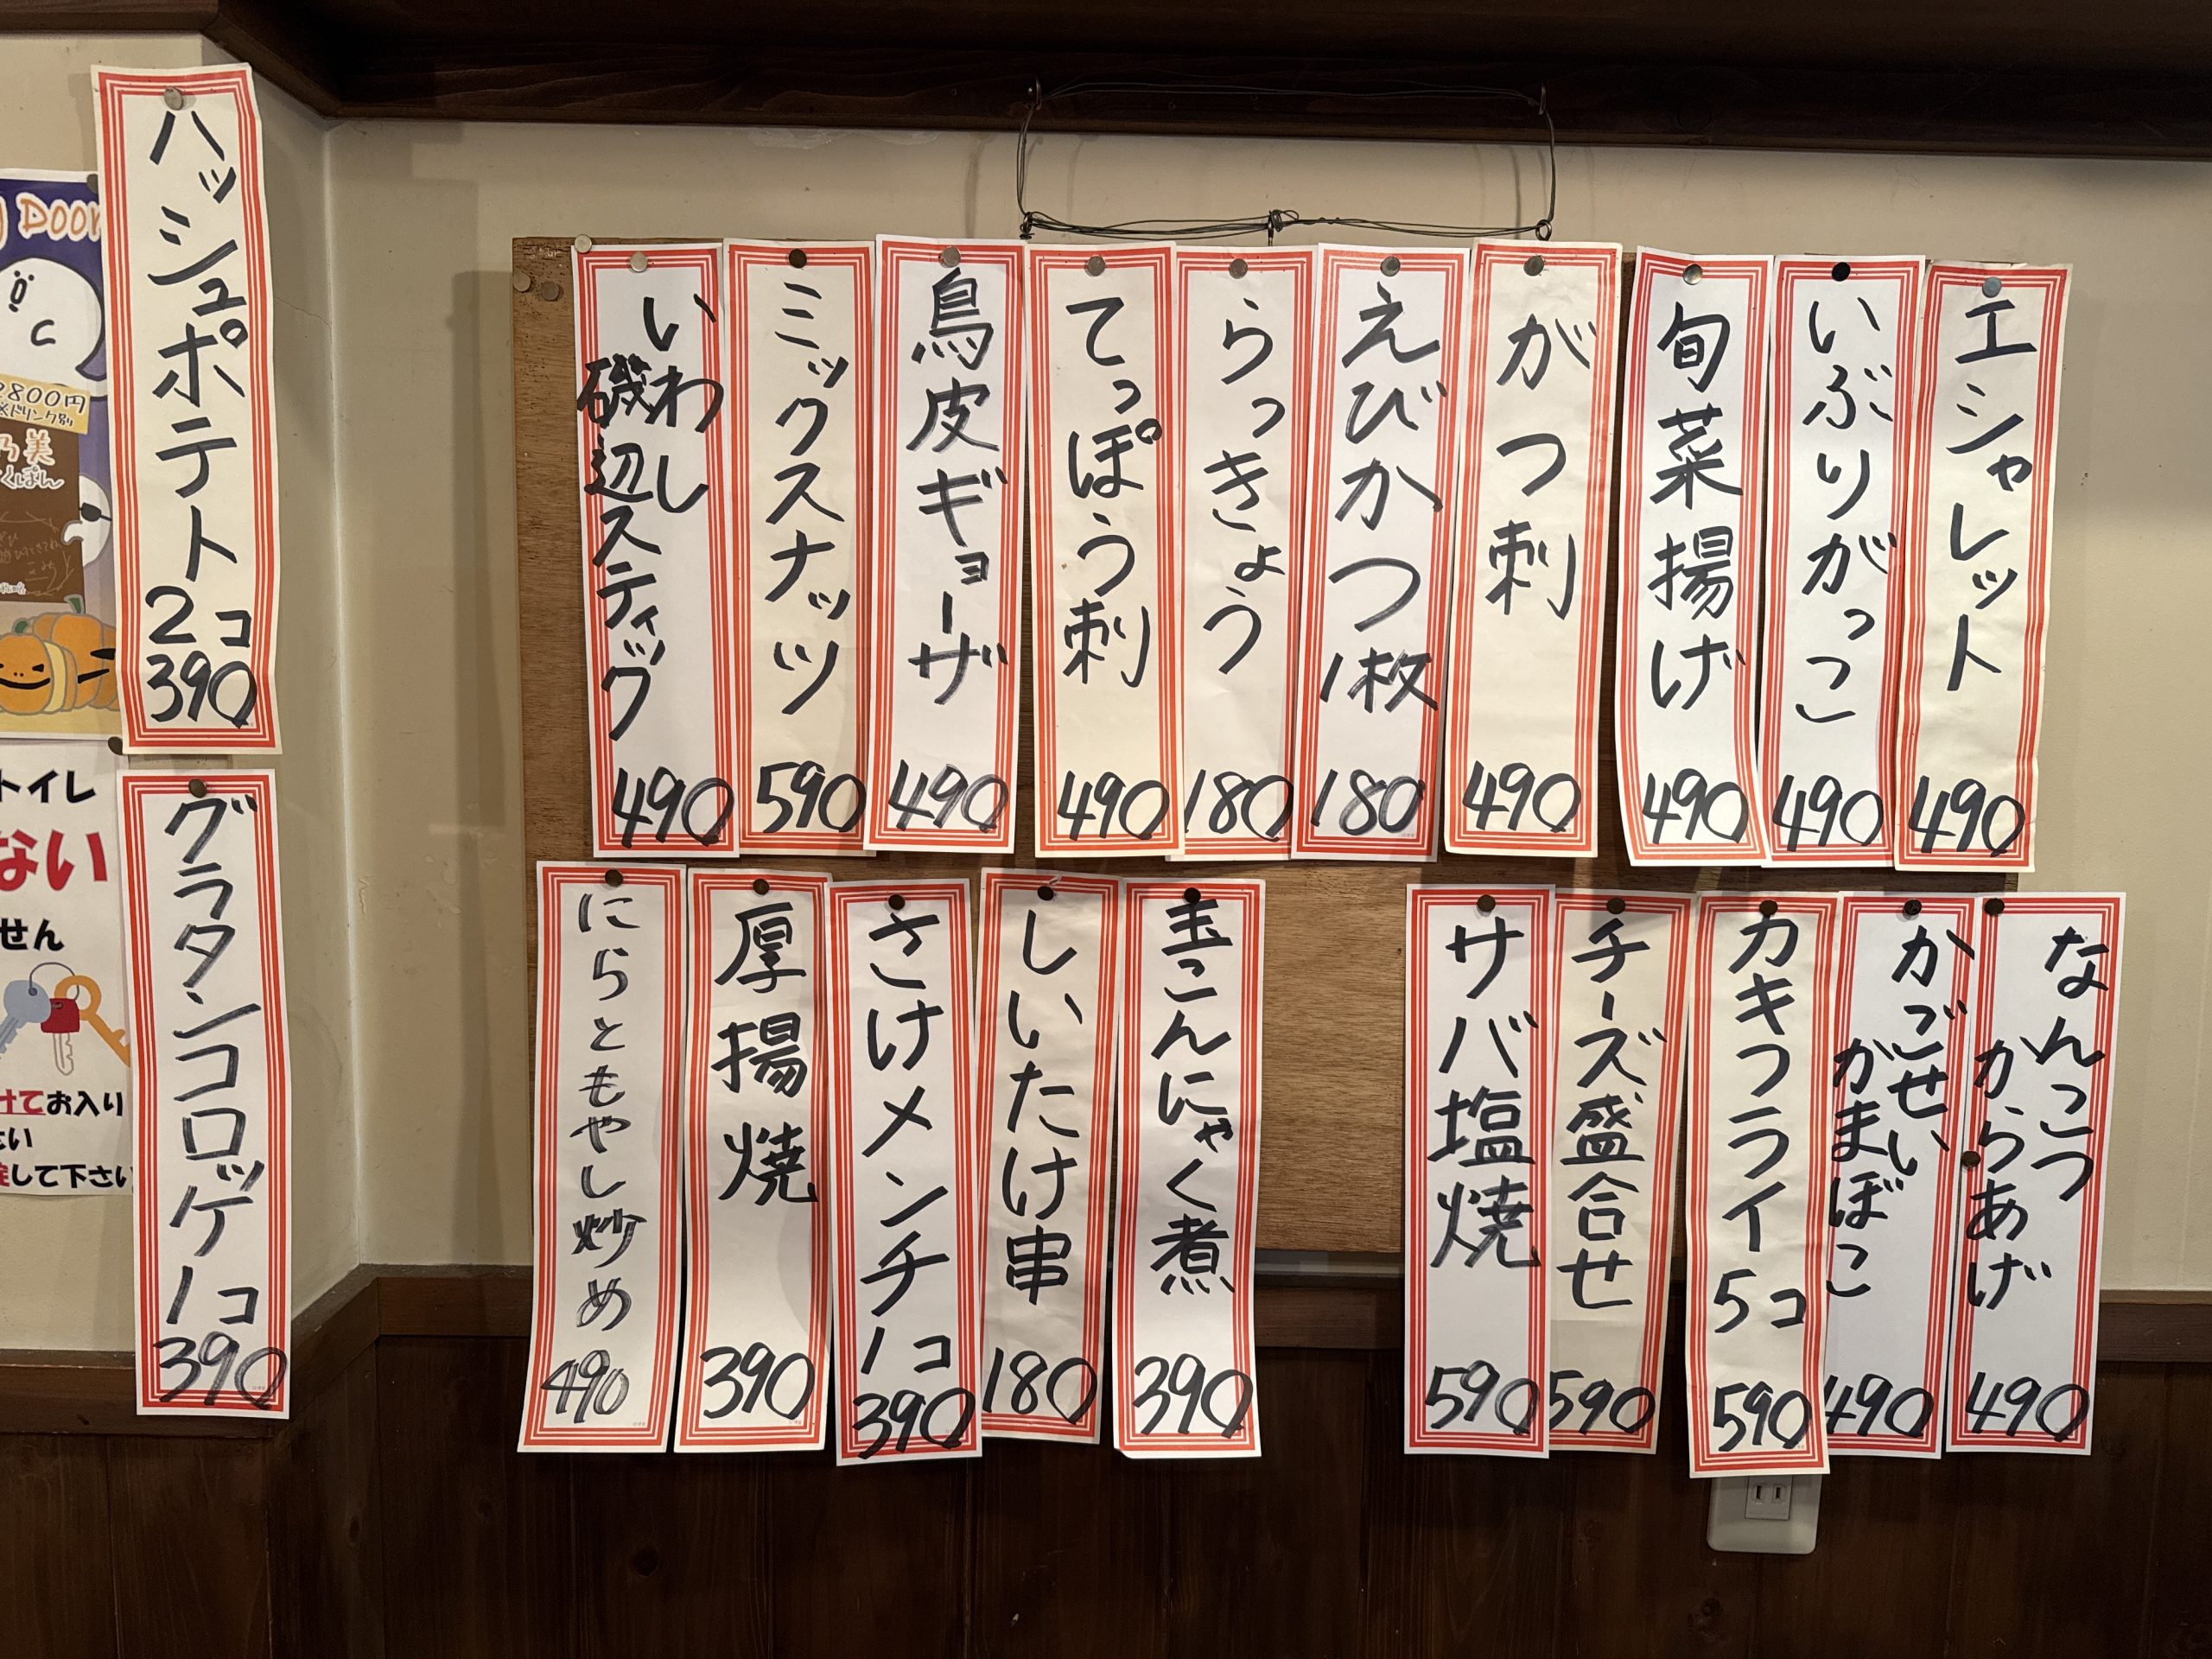 エシャレット
490
いぶりがっこ
490
旬菜揚げ
490
がつ刺
490
えびかつ
1枚
180
らっきょう
180
てっぽう刺
490
鳥皮ギョーザ
490
ミックスナッツ
590
いわし
磯辺スティック
490
なんこつ
からあげ
490
かごせい
かまぼこ
490
カキフライ5コ
590
チーズ盛合せ
590
サバ塩焼
590
玉こんにゃく煮
390
しいたけ串
180
さけメンチ1コ
390
厚揚焼
390
にらともやし炒め
490
ハッシュポテト
2コ
390
グラタンコロッケ1コ
390
Door
2800円
※ドリンク別
トイレ
ない
せん
けてお入り
して下さい